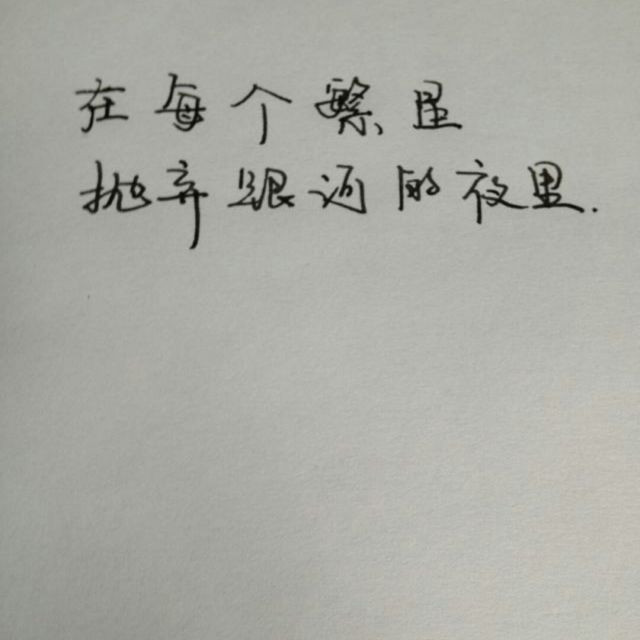 在每个繁星
抛弃银河的夜里.